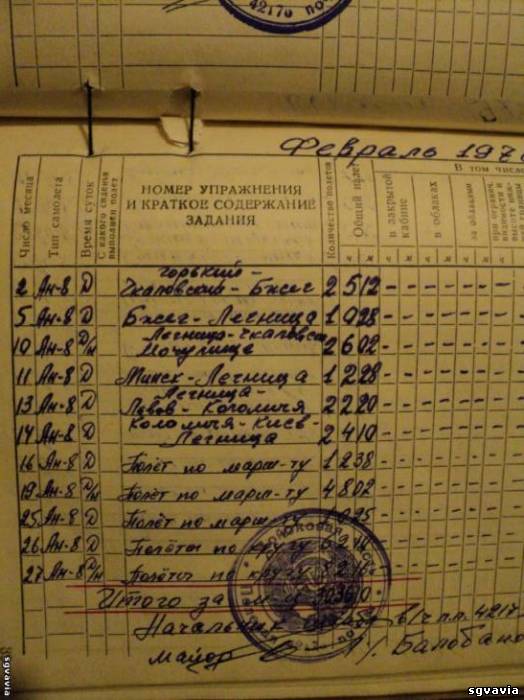 42170
Февраль 197
Число месяца
Тип самолета
Время суток
С какого сиденья выполнен полет
НОМЕР УПРАЖНЕНИЯ
И КРАТКОЕ СОДЕРЖАНИЕ
ЗАДАНИЯ
Количество полетов
Общий налет
В том числе
в закрытой кабине
в облаках
за облаками
Горький -
2 Ан-8 Д Чкаловский - Бжег 2 5 12 - - - - - -
5 Ан-8 Д Бжег - Легница 1 0 28 - - - - - -
Легница - Чкаловск
10 Ан-8 Д/Н Мочулище 2 6 02 - - - - - -
11 Ан-8 Д Минск - Легница 1 2 28 - - - - - -
Легница -
13 Ан-8 Д Львов - Коломыя 2 2 20 - - - - - -
Коломыя - Киев -
14 Ан-8 Д Легница 2 4 10 - - - - - -
16 Ан-8 Д Полёт по марш-ту 1 2 38 - - - - - -
19 Ан-8 Д/Н Полёт по марш-ту 4 8 02 - - - - - -
25 Ан-8 Д Полёт по марш-ту
26 Ан-8 Д/Н Полёты по кругу
27 Ан-8 Д/Н Полёты по кругу
Итого за
Начальник штаба в/ч п.п. 4217
майор /Балобано
sgvavia
sgvavia